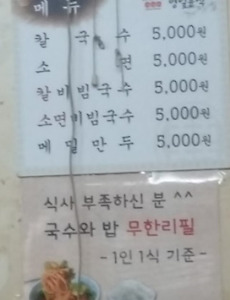 메 뉴
칼 국 수 5,000원
소 면 5,000원
칼비빔국수 5,000원
소면비빔국수 5,000원
메밀만두 5,000원
식사 부족하신 분 ^^
국수와 밥 무한리필
- 1인 1식 기준 -